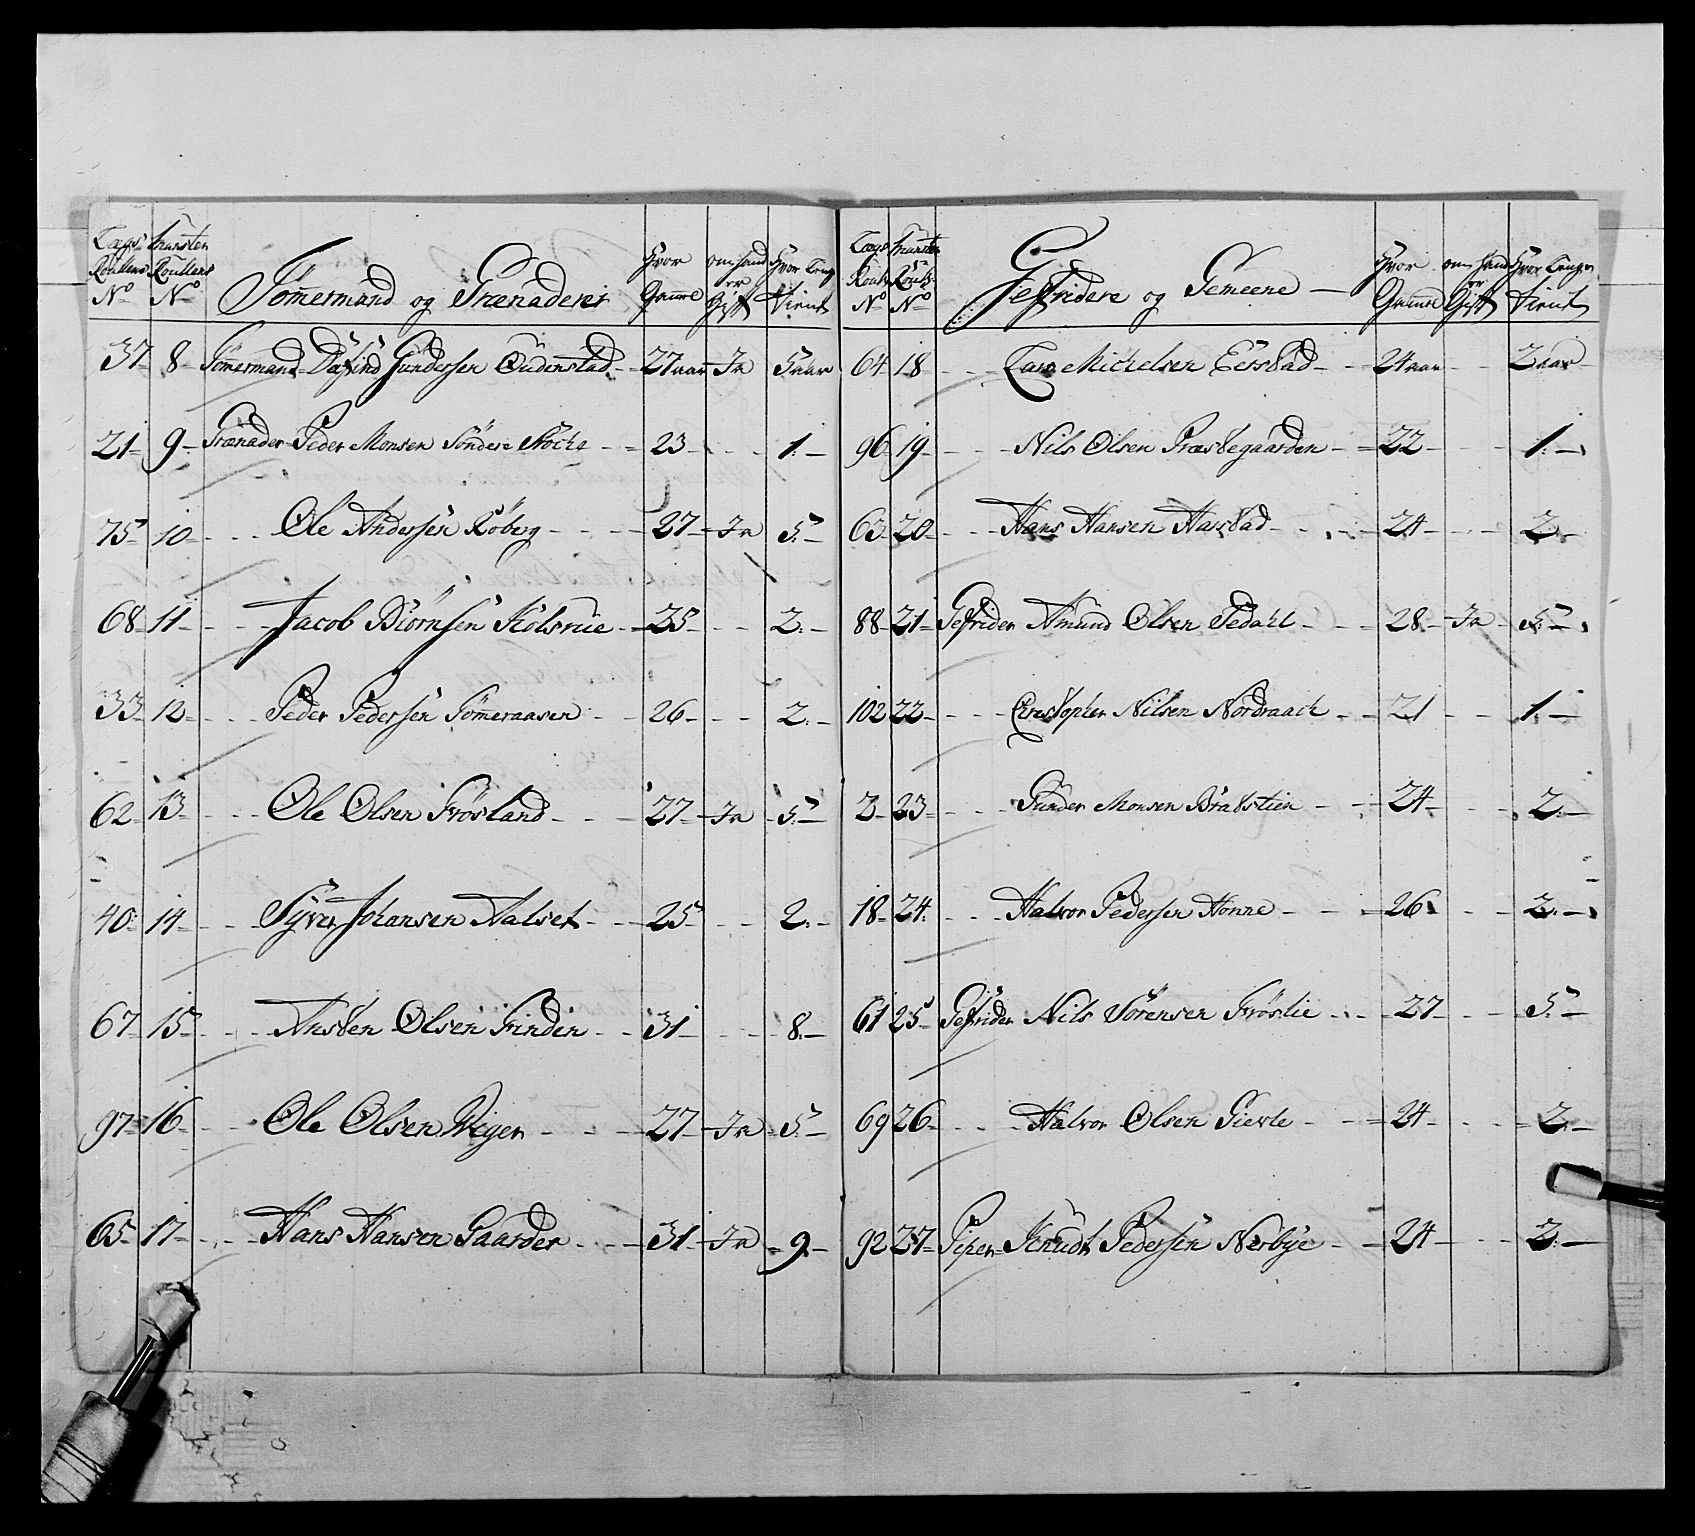 Lægs Roullens No Munster Roullens No Tömermænd og Grænaderer Hvor Gamme om hand er Gift Hvor længe tient
37 8 Tömermand Dafind Gundersen Oudenstad 27 aar Ja 5 aar
21 9 Grænader Peder Monsen Söndere 23 1
75 10 Ole Andersen Röberg 27 Ja 5
68 11 Jacob Biörnsen Kolsrue 25 2
33 12 Peder Pedersen Tömeraasen 26 2
62 13 Ole Olsen Frösland 27 Ja 5
40 14 Syver Johansen Aalset 25 2
67 15 Ansten Olsen Grinden 31 8
97 16 Ole Olsen Wigen 27 Ja 5
65 17 Hans Hansen Gaarder 31 Ja 9
Lægs Roulls No Munster Roulls No Gefridere og Gemeene Hvor Gamme om hand er Gift Hvor længe tient
64 18 Lars Michelsen 24 aar 2 aar
96 19 Nils Olsen Præstegaarden 22 1
63 20 Hans Hansen 24 2
88 21 Gefrider Amund Olsen Tedahl 28 Ja 5
102 22 Christopher Nilsen Nordraach 21 1
2 23 Gunder Monsen Bratstien 24 2
18 24 Halvor Pedersen Honne 26 2
61 25 Gefrider Nils Sörensen Fröslie 27 5
69 26 Halvor Olsen Gievle 24 2
92 27 Piper Knudt Pedersen Nerbÿe 24 2